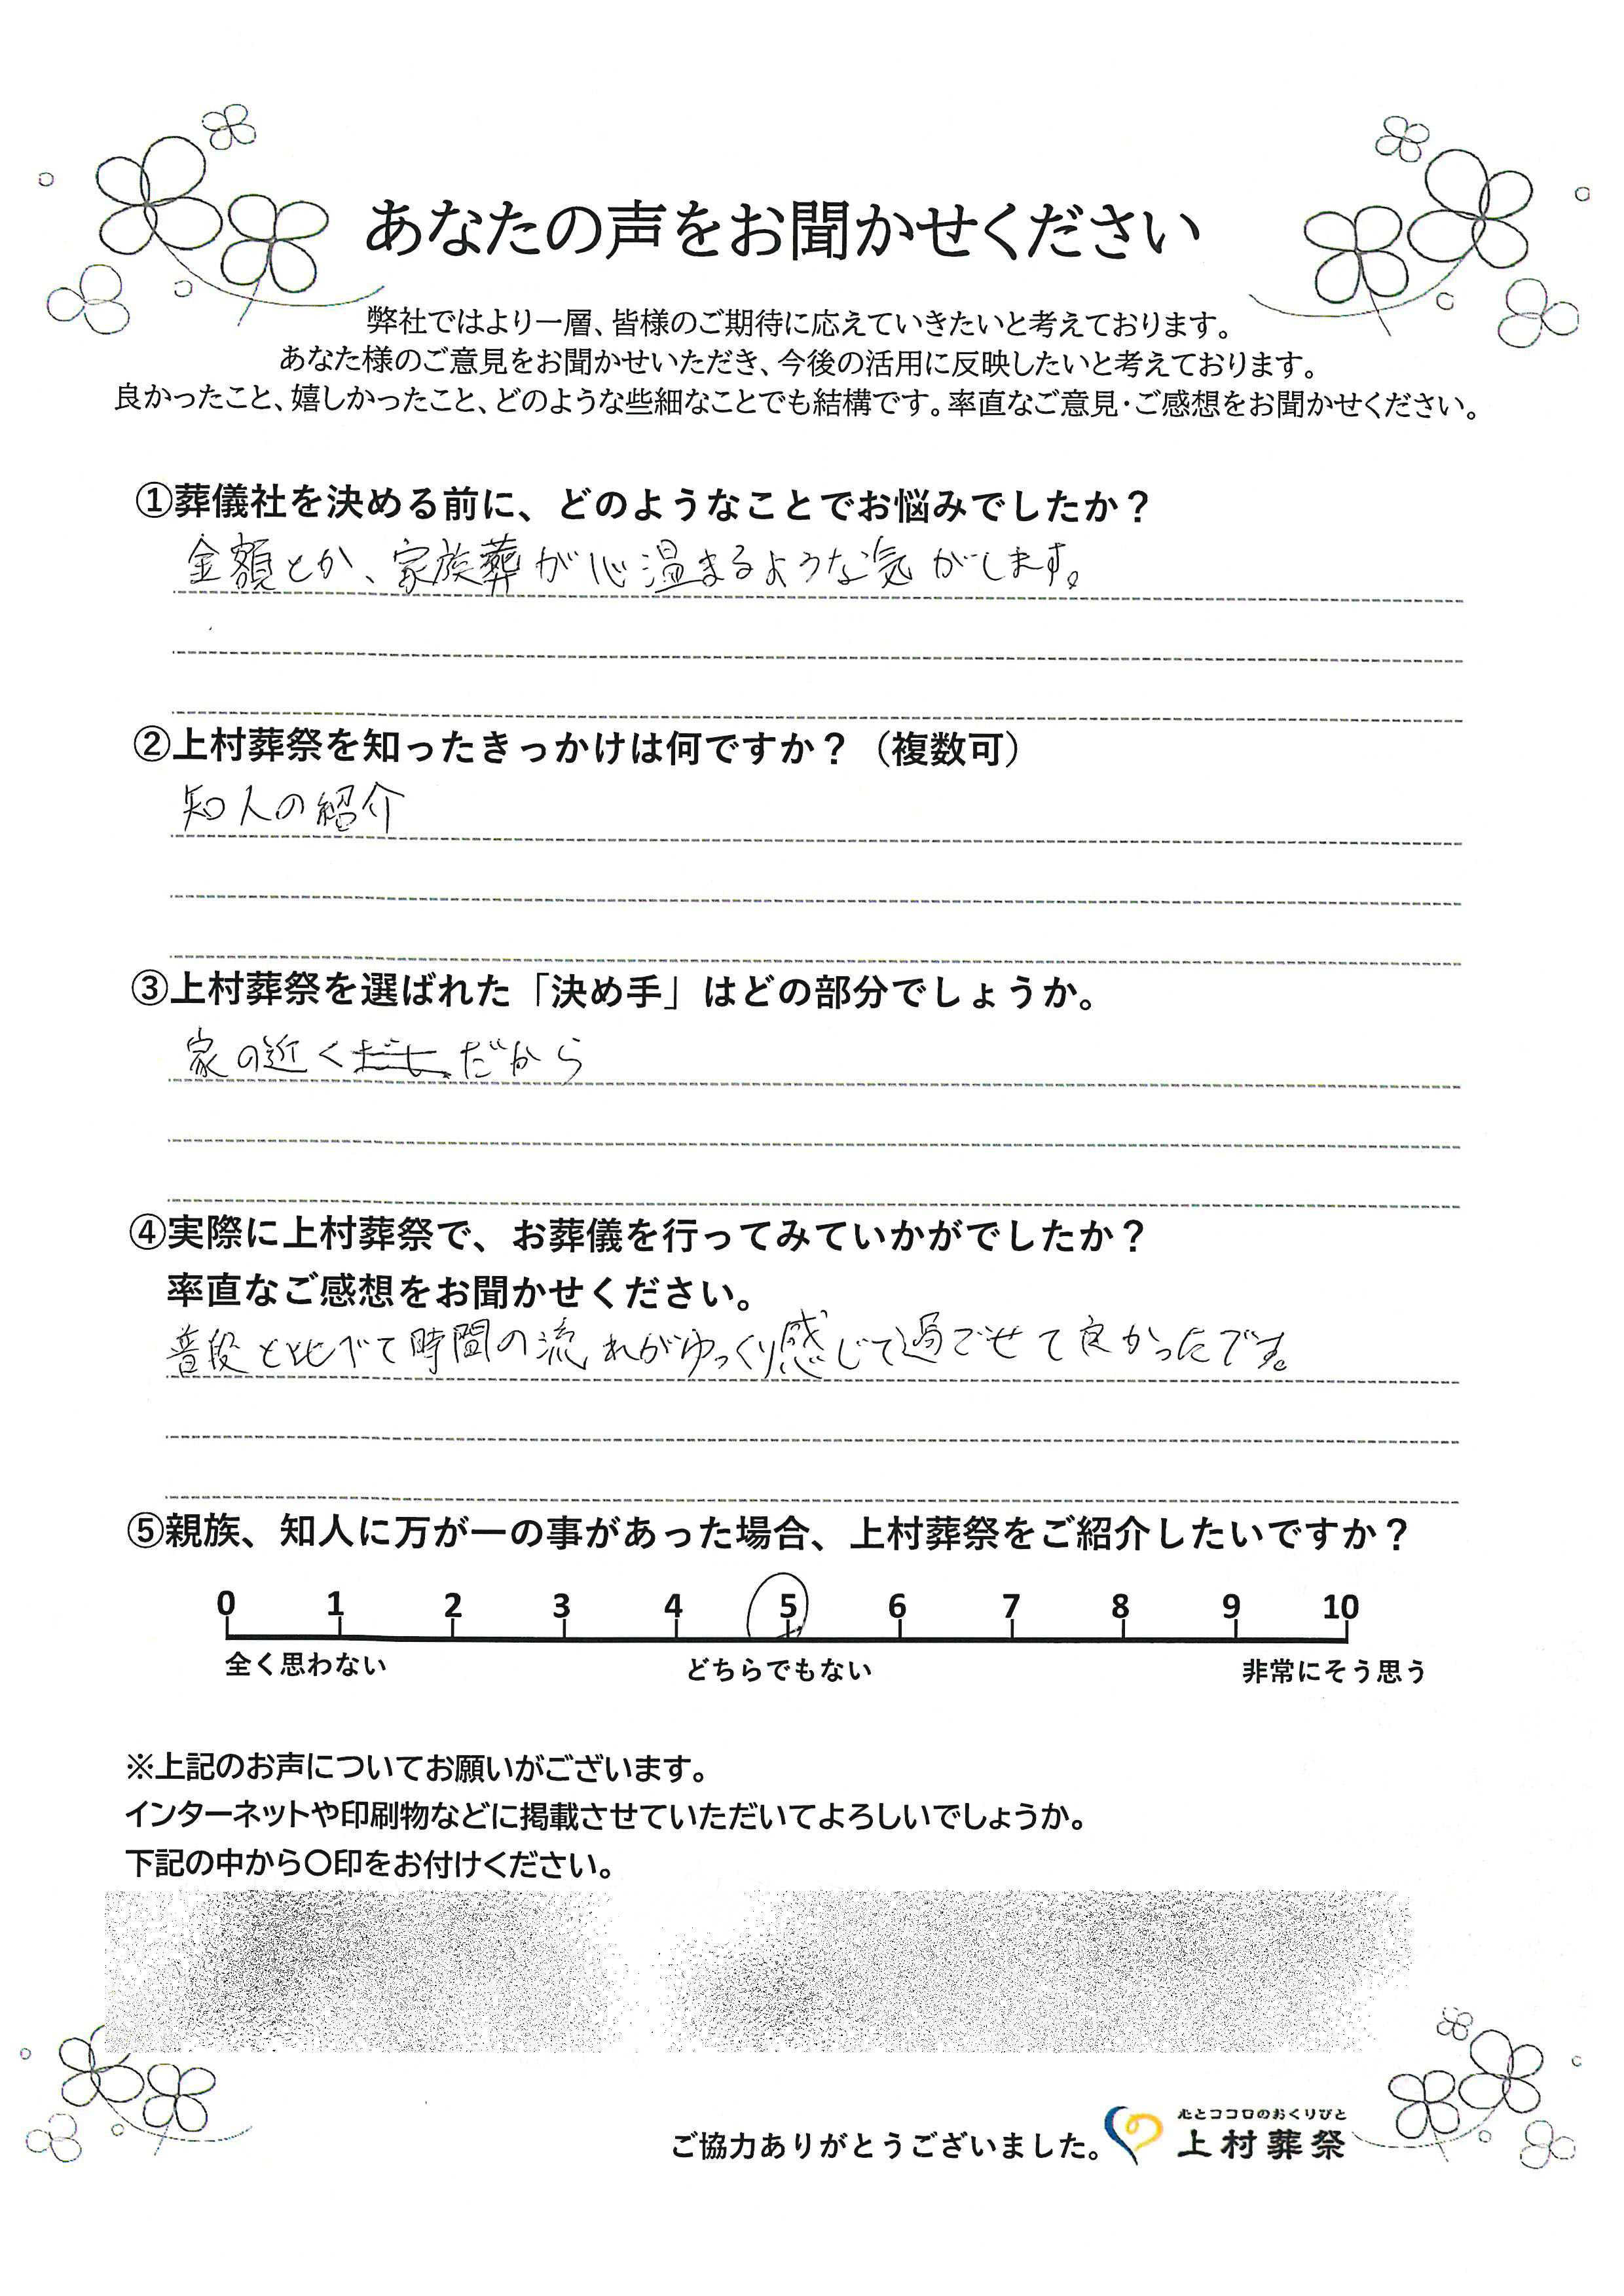 あなたの声をお聞かせください
弊社ではより一層、皆様のご期待に応えていきたいと考えております。
あなた様のご意見をお聞かせいただき、今後の活用に反映したいと考えております。
良かったこと、嬉しかったこと、どのような些細なことでも結構です。率直なご意見・ご感想をお聞かせください。
①葬儀社を決める前に、どのようなことでお悩みでしたか？
金額とか、家族葬が心温まるような気がします。
②上村葬祭を知ったきっかけは何ですか？（複数可）
知人の紹介
③上村葬祭を選ばれた「決め手」はどの部分でしょうか。
家の近くだから
④実際に上村葬祭で、お葬儀を行ってみていかがでしたか？
率直なご感想をお聞かせください。
普段と比べて時間の流れがゆっくり感じて過ごせて良かったです。
⑤親族、知人に万が一の事があった場合、上村葬祭をご紹介したいですか？
0 1 2 3 4 5 6 7 8 9 10
全く思わない どちらでもない 非常にそう思う
※上記のお声についてお願いがございます。
インターネットや印刷物などに掲載させていただいてよろしいでしょうか。
下記の中から〇印をお付けください。
ご協力ありがとうございました。
心とココロのおくりびと
上村葬祭